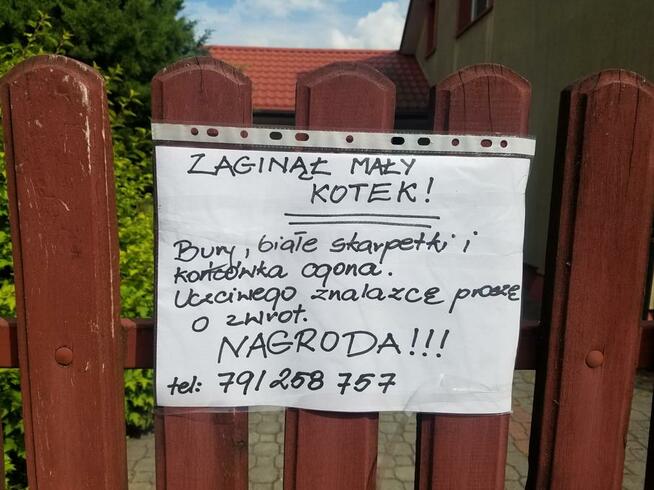 ZAGINĄŁ MAŁY
KOTEK!
Bury, białe skarpetki i
końcówka ogona.
Uczciwego znalazcę proszę
o zwrot.
NAGRODA!!!
tel: 791 258 757